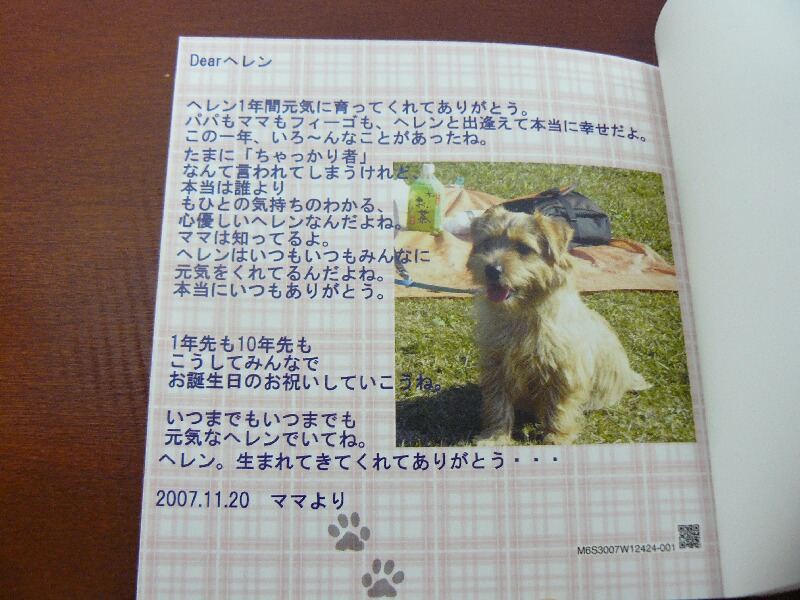 Dearヘレン
ヘレン1年間元気に育ってくれてありがとう。
パパもママもフィーゴも、ヘレンと出逢えて本当に幸せだよ。
この一年、いろ～んなことがあったね。
たまに「ちゃっかり者」
なんて言われてしまうけれど、
本当は誰より
もひとの気持ちのわかる、
心優しいヘレンなんだよね。
ママは知ってるよ。
ヘレンはいつもいつもみんなに
元気をくれてるんだよね。
本当にいつもありがとう。
1年先も10年先も
こうしてみんなで
お誕生日のお祝いしていこうね。
いつまでもいつまでも
元気なヘレンでいてね。
ヘレン。生まれてきてくれてありがとう・・・
2007.11.20 ママより
お茶
M6S3007W12424-001